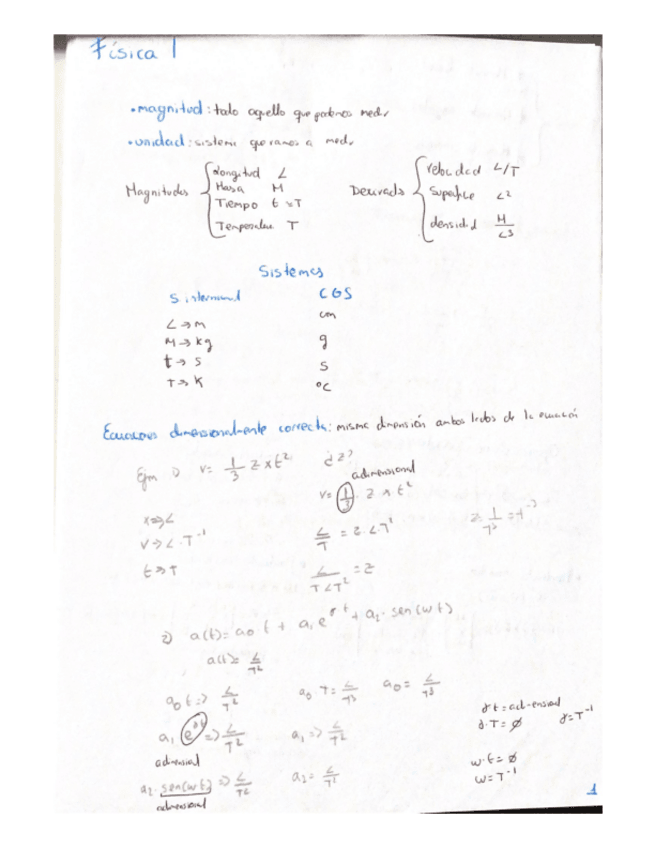 Física 1
• magnitud: todo aquello que podemos medir
• unidad: sistema que vamos a medir
Magnitudes
Longitud L
Masa M
Tiempo t = T
Temperatura T
Derivada
velocidad L/T
Superficie L²
densidad M/L³
Sistemas
S. internacional CGS
L → m cm
M → kg g
t → s s
T → K °C
Ecuaciones dimensionalmente correcta: misma dimensión ambos lados de la ecuación
Ejm 1) v = 1/3 z x t² ¿z?
adimensional
v = 1/3 · z x t²
x ⇒ L
v ⇒ L · T⁻¹
t ⇒ T
L/T = z · L T²
L/(T L T²) = z
z · 1/T³ = T⁻³
2) a(t) = a₀ · t + a₁ e^(γt) + a₂ · sen(wt)
a(t) = L/T²
a₀ t ⇒ L/T² a₀ · T = L/T³ a₀ = L/T³
a₁ e^(γt) ⇒ L/T² a₁ ⇒ L/T²
adimensional
a₂ · sen(wt) ⇒ L/T² a₂ = L/T²
adimensional
γt = adimensional
γ · T = ∅ γ = T⁻¹
w · t = ∅
w = T⁻¹
1